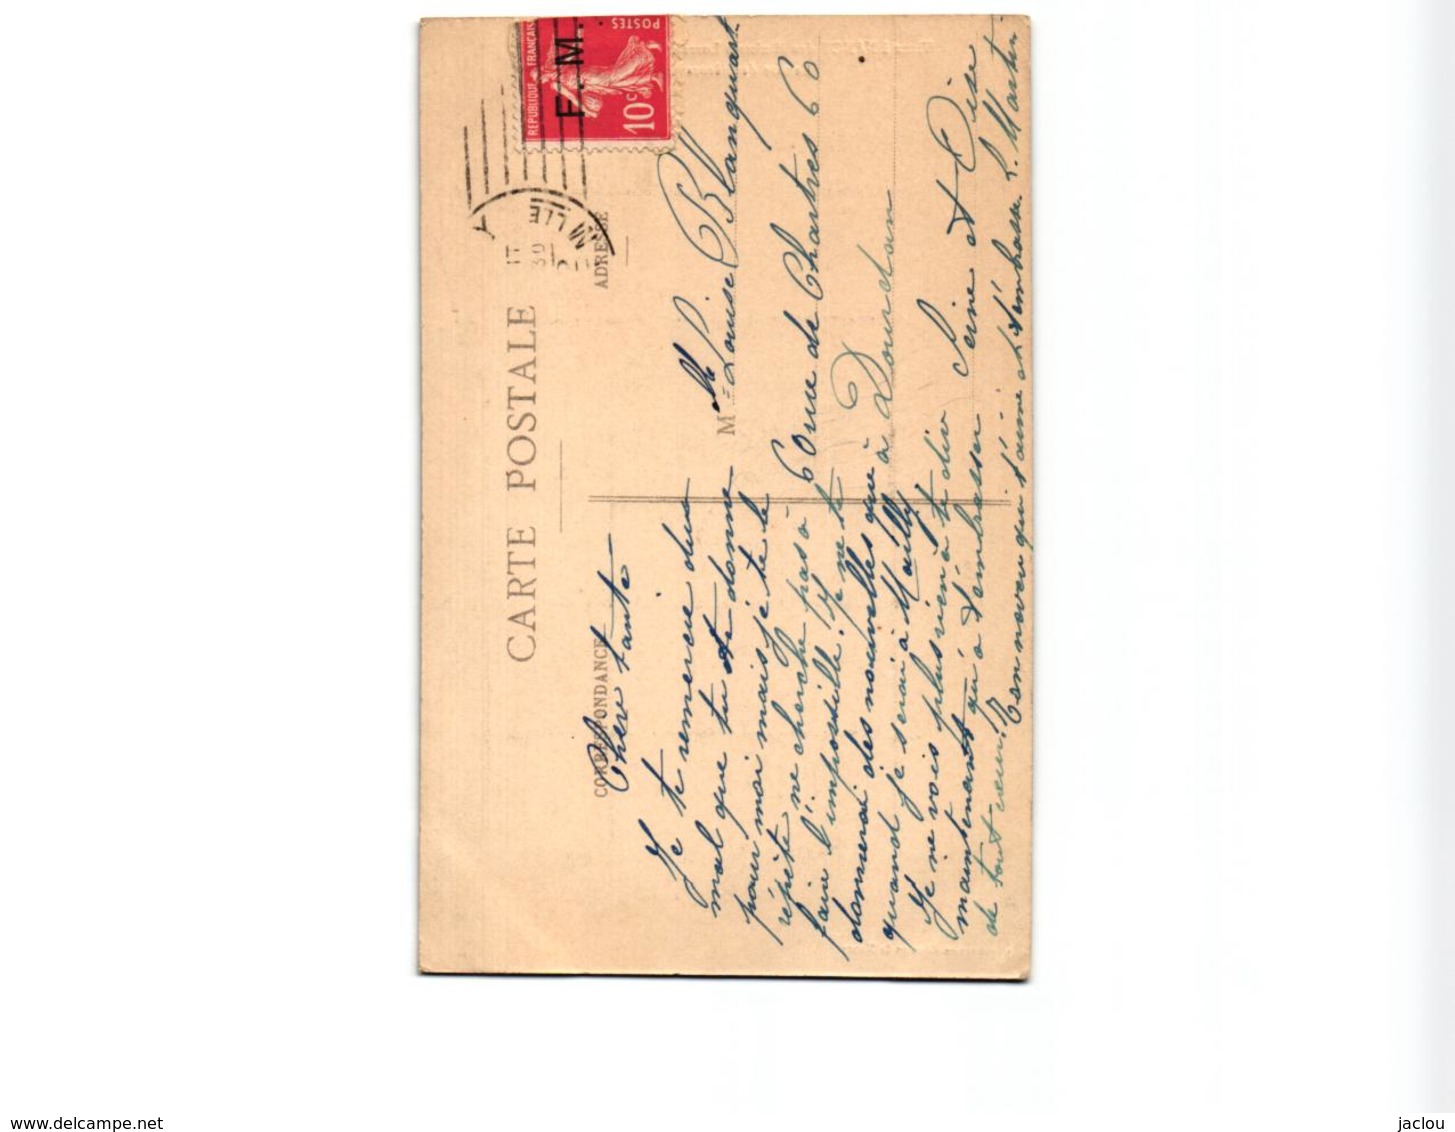 CARTE POSTALE
CORRESPONDANCE
ADRESSE
REPUBLIQUE FRANÇAISE
POSTES
10c
F. M.
Chere tante
Je te remercie du
mal que tu te donne
pour moi mais je te le
répète ne cherche pas à
faire l'impossible. Je ne te
donnerai des nouvelles que
quand je serai à Mailly.
Je ne vois plus rien à te dire
maintenant qu'à t'embrasser
de tout cœur. Ton neveu qui t'aime et t'embrasse L. Martin
Mlle Louise Blanquart
Rue de Chartres 60
à Dourdan
Seine et Oise
www.delcampe.net
jaclou